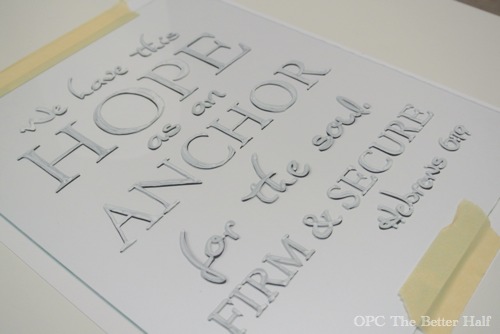 We have this
HOPE
as an
ANCHOR
for the soul.
FIRM & SECURE
Hebrews 6:19
OPC The Better Half